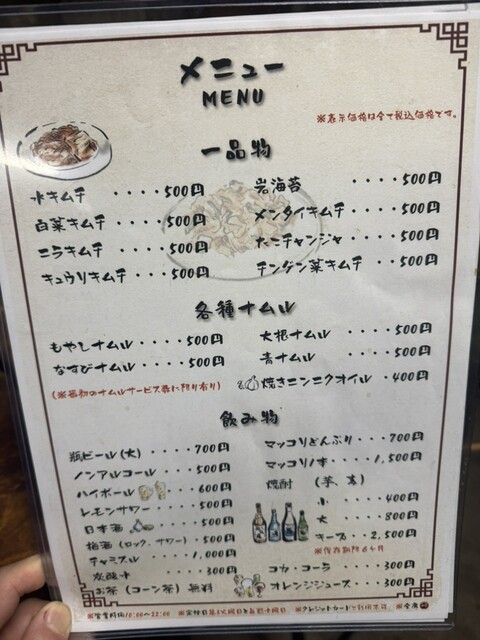 メニュー
MENU
※表示価格は全て税込価格です。
一品物
水キムチ ････500円
白菜キムチ ･･･500円
ニラキムチ ････500円
キュウリキムチ ･･･500円
岩海苔 ････500円
メンタイキムチ････500円
たこチャンジャ ････500円
チンゲン菜キムチ ･･500円
各種ナムル
もやしナムル････500円
なすびナムル････500円
大根ナムル ････500円
青ナムル ････500円
焼きニンニクオイル ･400円
飲み物
瓶ビール(大) ････700円
ノンアルコール ････500円
ハイボール ････600円
レモンサワー ････500円
日本酒 ････500円
梅酒(ロック、サワー)････500円
チャミスル ････1,000円
炭酸水 ････300円
お茶(コーン茶) 無料
マッコリどんぶり････700円
マッコリ1本････1,500円
焼酎 (芋、麦)
小 ････400円
大 ････800円
キープ･･2,500円
※保存期限6ヶ月
コカ・コーラ ････300円
オレンジジュース････300円